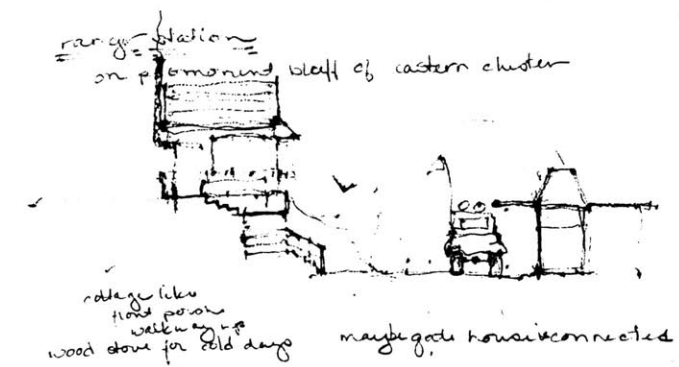 ranger station
on promonent bluff of eastern cluster
cottage like
front porch
walkway up
wood stove for cold days
maybe gate house is connected